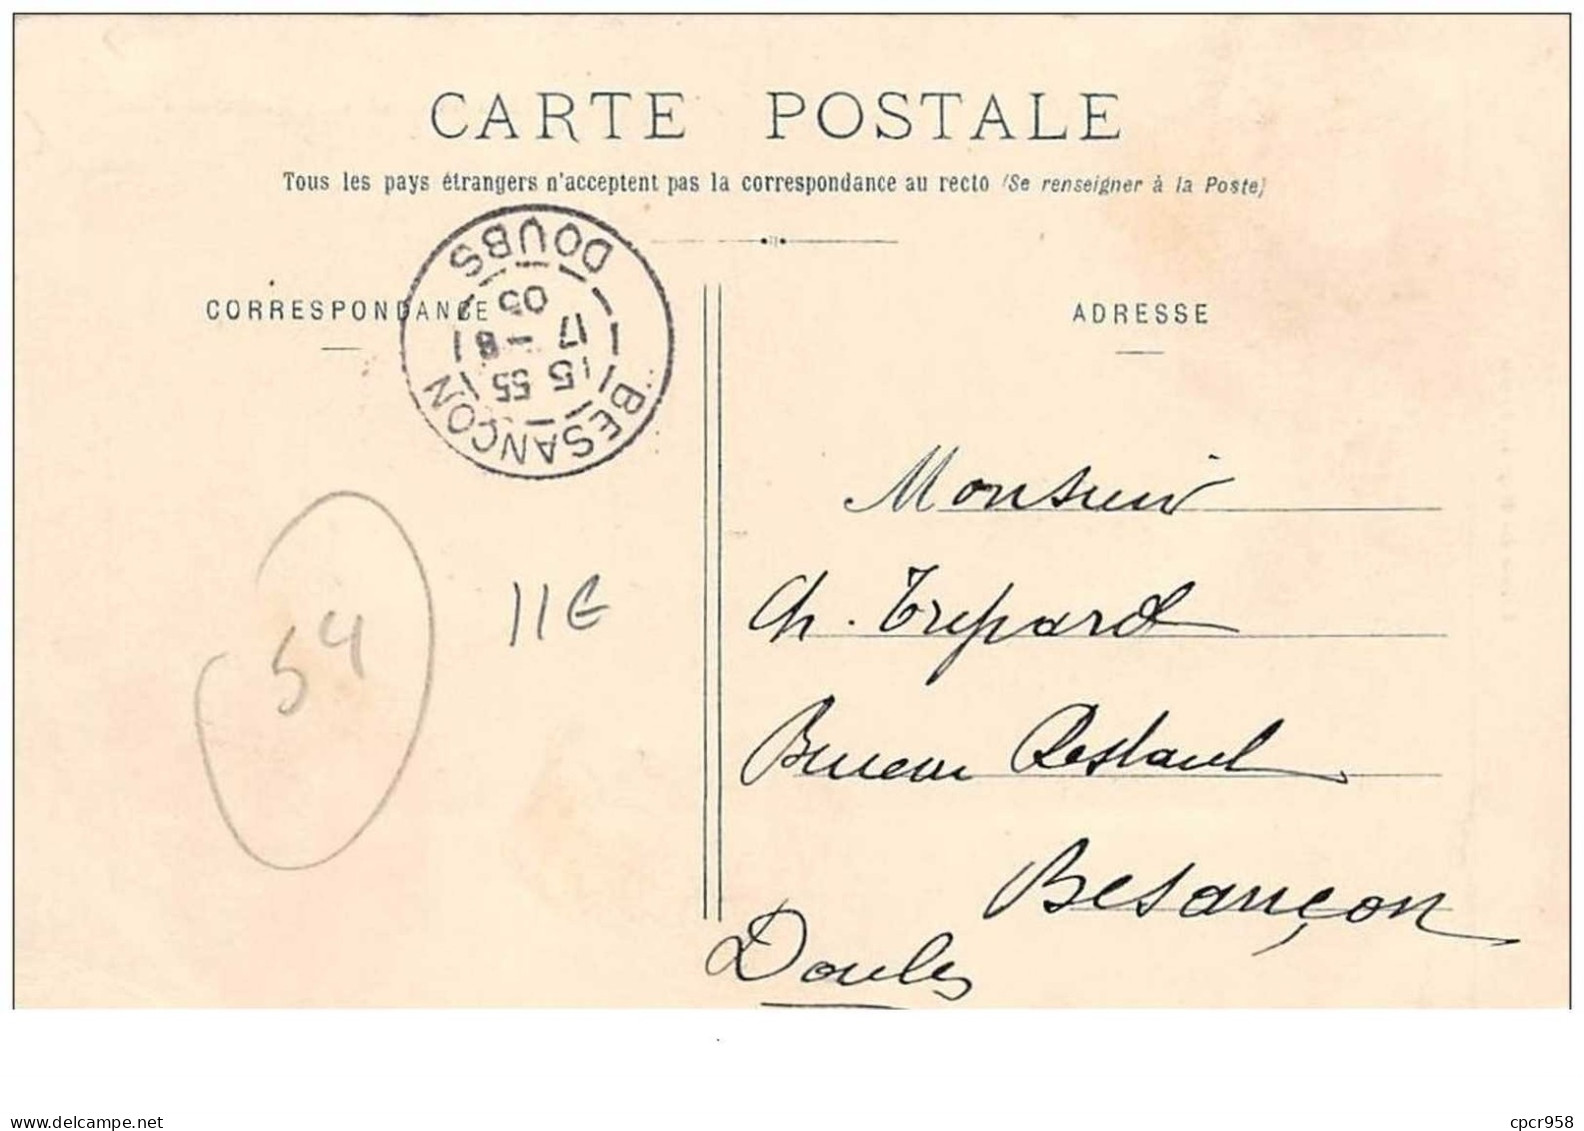 CARTE POSTALE
Tous les pays étrangers n'acceptent pas la correspondance au recto (Se renseigner à la Poste)
CORRESPONDANCE
ADRESSE
BESANÇON
15 55
17 - 8
05
DOUBS
Monsieur
Ch. Trépard
Bureau Restant
Besançon
Doubs
54
11€
www.delcampe.net
cpcr958